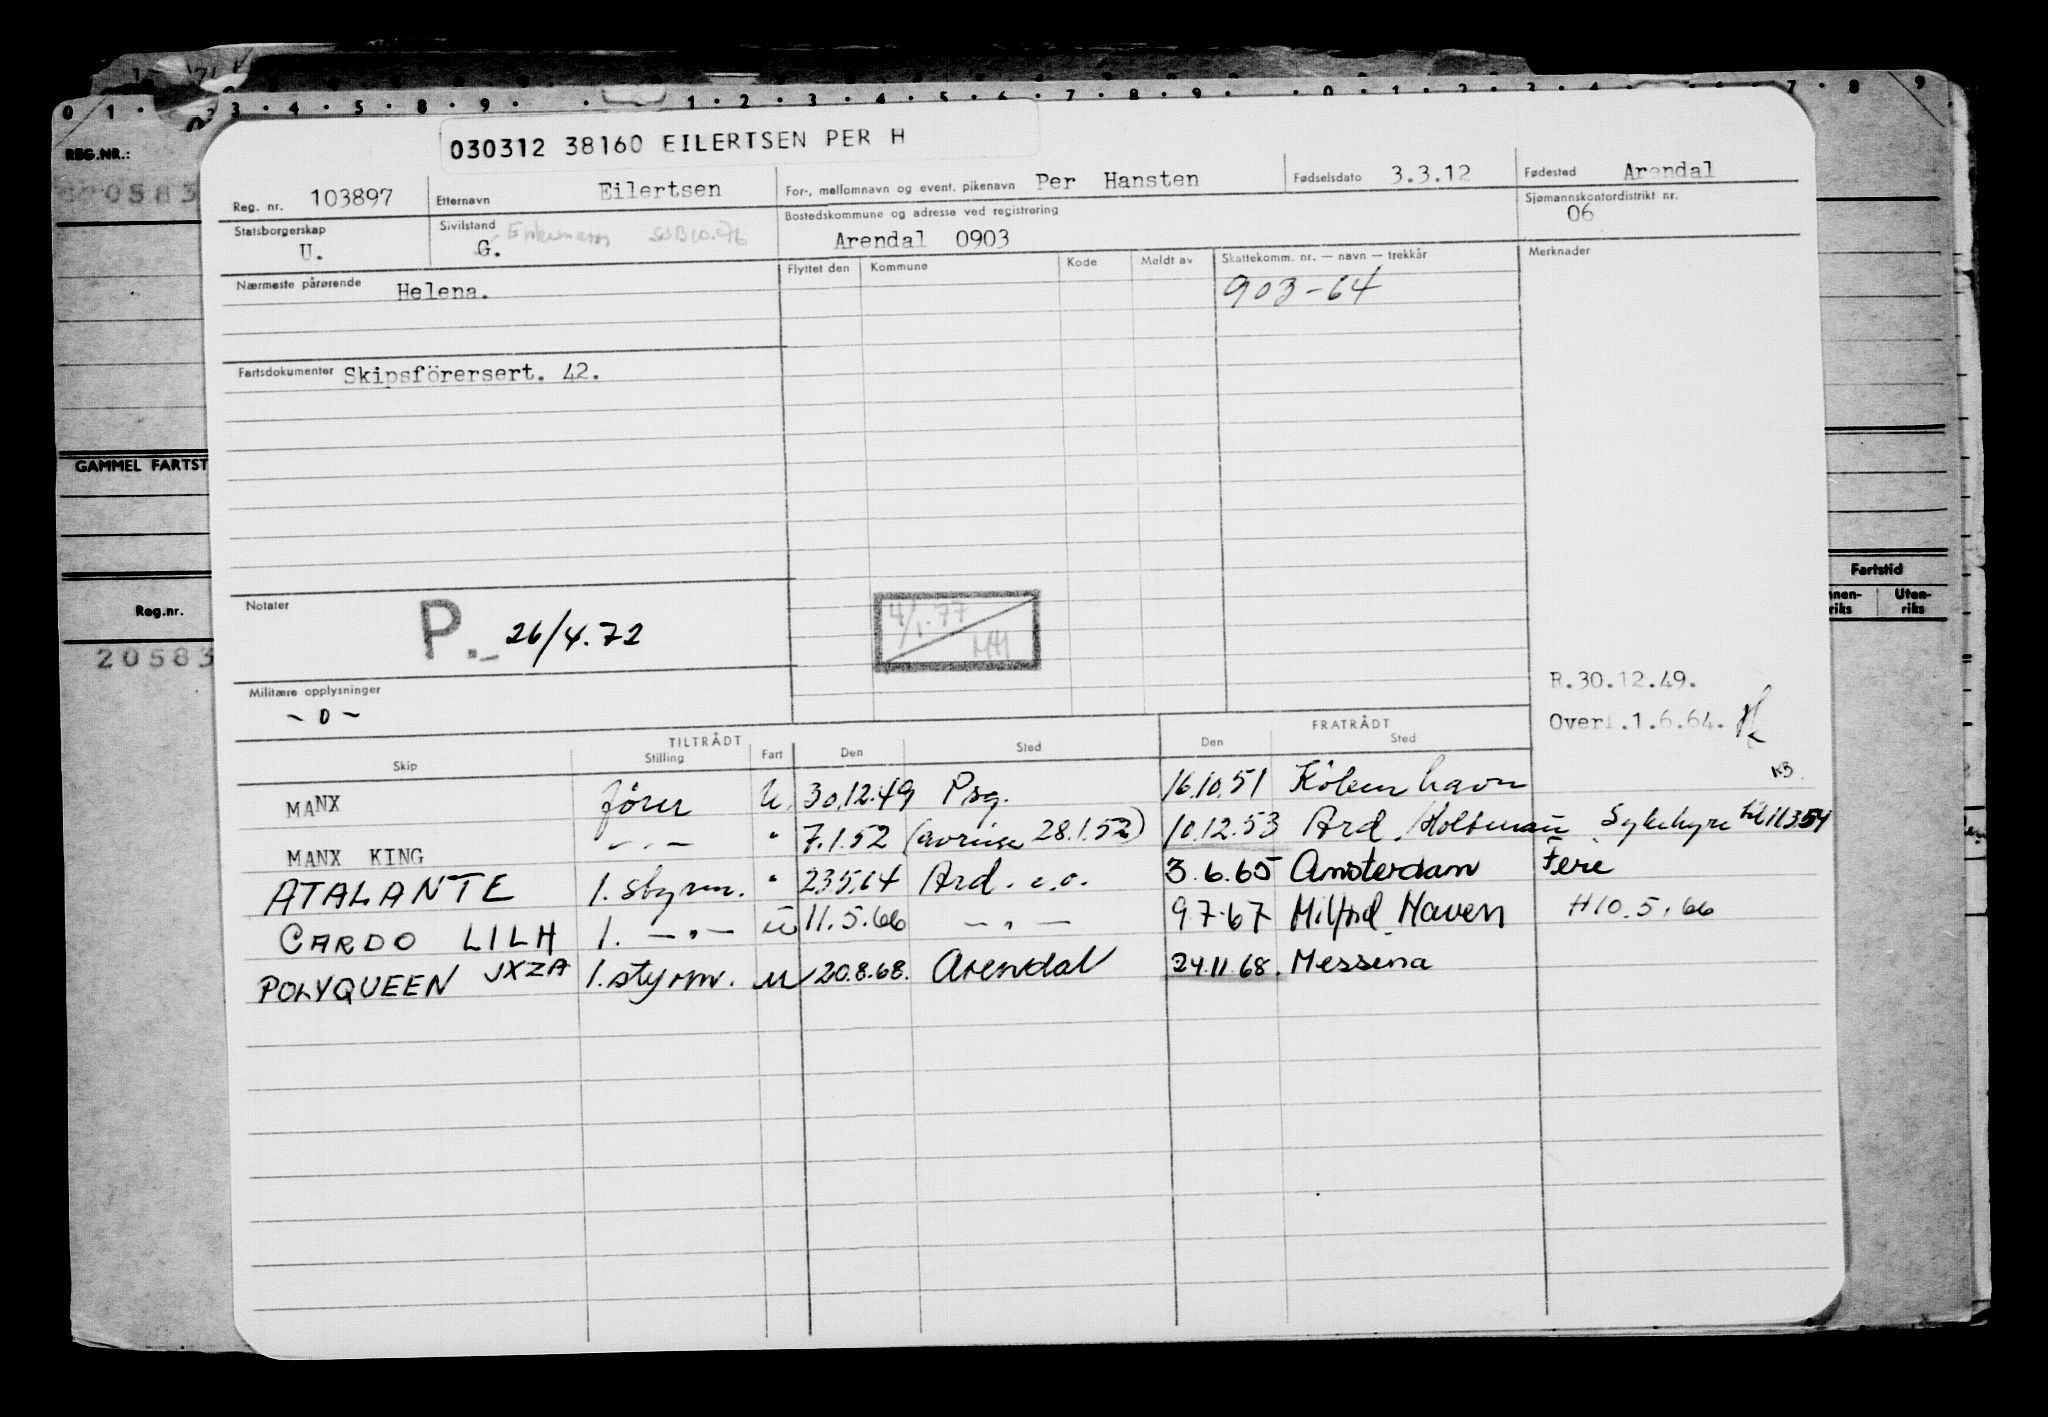 0 1 . 2 3 . 4 . 5 . 8 . 9 . . 1 . 2 . 3 . 4 . 5 . 6 . 7 . 8 . 9 . . 0 . 1 . 2 . 3 . 4 7 . 8 9
REG.NR.:
20583
030312 38160 EILERTSEN PER H
Reg. nr. 103897 Etternavn Eilertsen For-, mellomnavn og event. pikenavn Per Hansten Fødselsdato 3.3.12 Fødested Arendal
Statsborgerskap U. Sivilstand G. Enkemann Bostedskommune og adresse ved registrering Arendal 0903 Sjømannskontordistrikt nr. 06
Nærmeste pårørende Helena. Flyttet den Kommune Kode Meldt av Skattekomm. nr. — navn — trekkår Merknader
903-64
Fartsdokumenter Skipsförersert. 42.
GAMMEL FARTST
Fartstid
Reg.nr. nnen-riks Uten-riks
20583
Notater P.- 26/4.72
4/1.77
Militære opplysninger
- 0 -
R.30.12.49.
Overf.1.6.64.
TILTRÅDT FRATRÅDT
Skip Stilling Fart Den Sted Den Sted
KB.
MANX fører U. 30.12.49 Psg. 16.10.51 København
MANX KING - " - " 7.1.52 (avreise 28.1.52) 10.12.53 Ard. Sykehyre til 11354
ATALANTE 1. styrm. " 23564 Ard. e.o. 3.6.65 Amsterdam Ferie
CARDO LILH 1. - " - u 11.5.66 - " - 9.7.67 Milford Haven H10.5.66
POLYQUEEN JXZA 1. styrm. u 20.8.68. Arendal 24.11.68. Messina